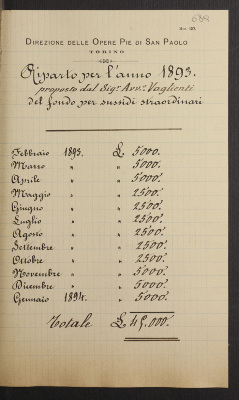 689
Mod. 123.
DIREZIONE DELLE OPERE PIE DI SAN PAOLO
TORINO
Riparto per l'anno 1893.
proposto dal Sigr. Avv. Vaglienti
del fondo per sussidi straordinari
Febbraio 1893. £ 5000.
Marzo " " 5000.
Aprile " " 5000.
Maggio " " 2500.
Giugno " " 2500.
Luglio " " 2500.
Agosto " " 2500.
Settembre " " 2500.
Ottobre " " 2500.
Novembre " " 5000.
Dicembre " " 5000.
Gennaio 1894. " 5000.
Totale £ 45,000.